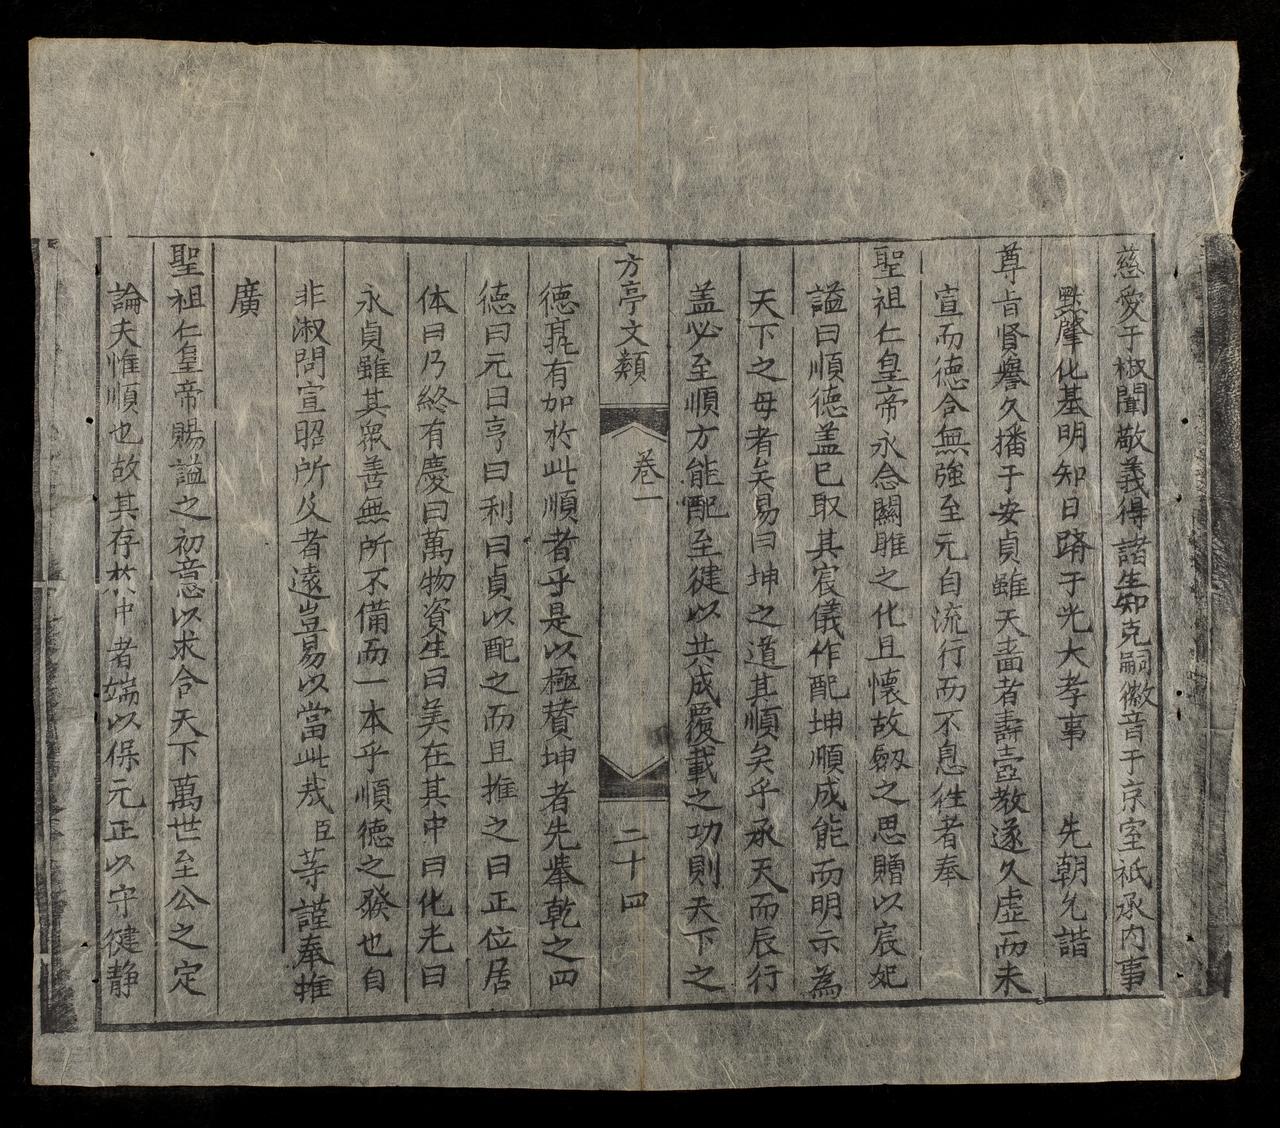 慈愛于椒闈敬義得諸生知克嗣徽音于京室祗承内事
黙肇化基明知日躋于光大孝事 先朝允諧
尊旨賢譽久播于安貞雖天嗇者壽壼教遂久虛而未
宣而徳合無強至元自流行而不息徃者奉
聖祖仁皇帝永念關雎之化且懷故劔之思贈以宸妃
諡曰順徳盖已取其宸儀作配坤順成能而明示為
天下之母者矣易曰坤之道其順矣乎承天而辰行
盖必至順方能配至健以共成覆載之功則天下之
方亭文類 卷一 二十四
徳髙有加於此順者乎是以極賛坤者先舉乾之四
徳曰元曰亨曰利曰貞以配之而且推之曰正位居
体曰乃終有慶曰萬物資生曰美在其中曰化光曰
永貞雖其衆善無所不備而一本乎順徳之發也自
非淑問宣昭所及者遠豈易以當此哉臣等謹奉推
廣
聖祖仁皇帝賜諡之初意以求合天下萬世至公之定
論夫惟順也故其存於中者端以保元正以守健静